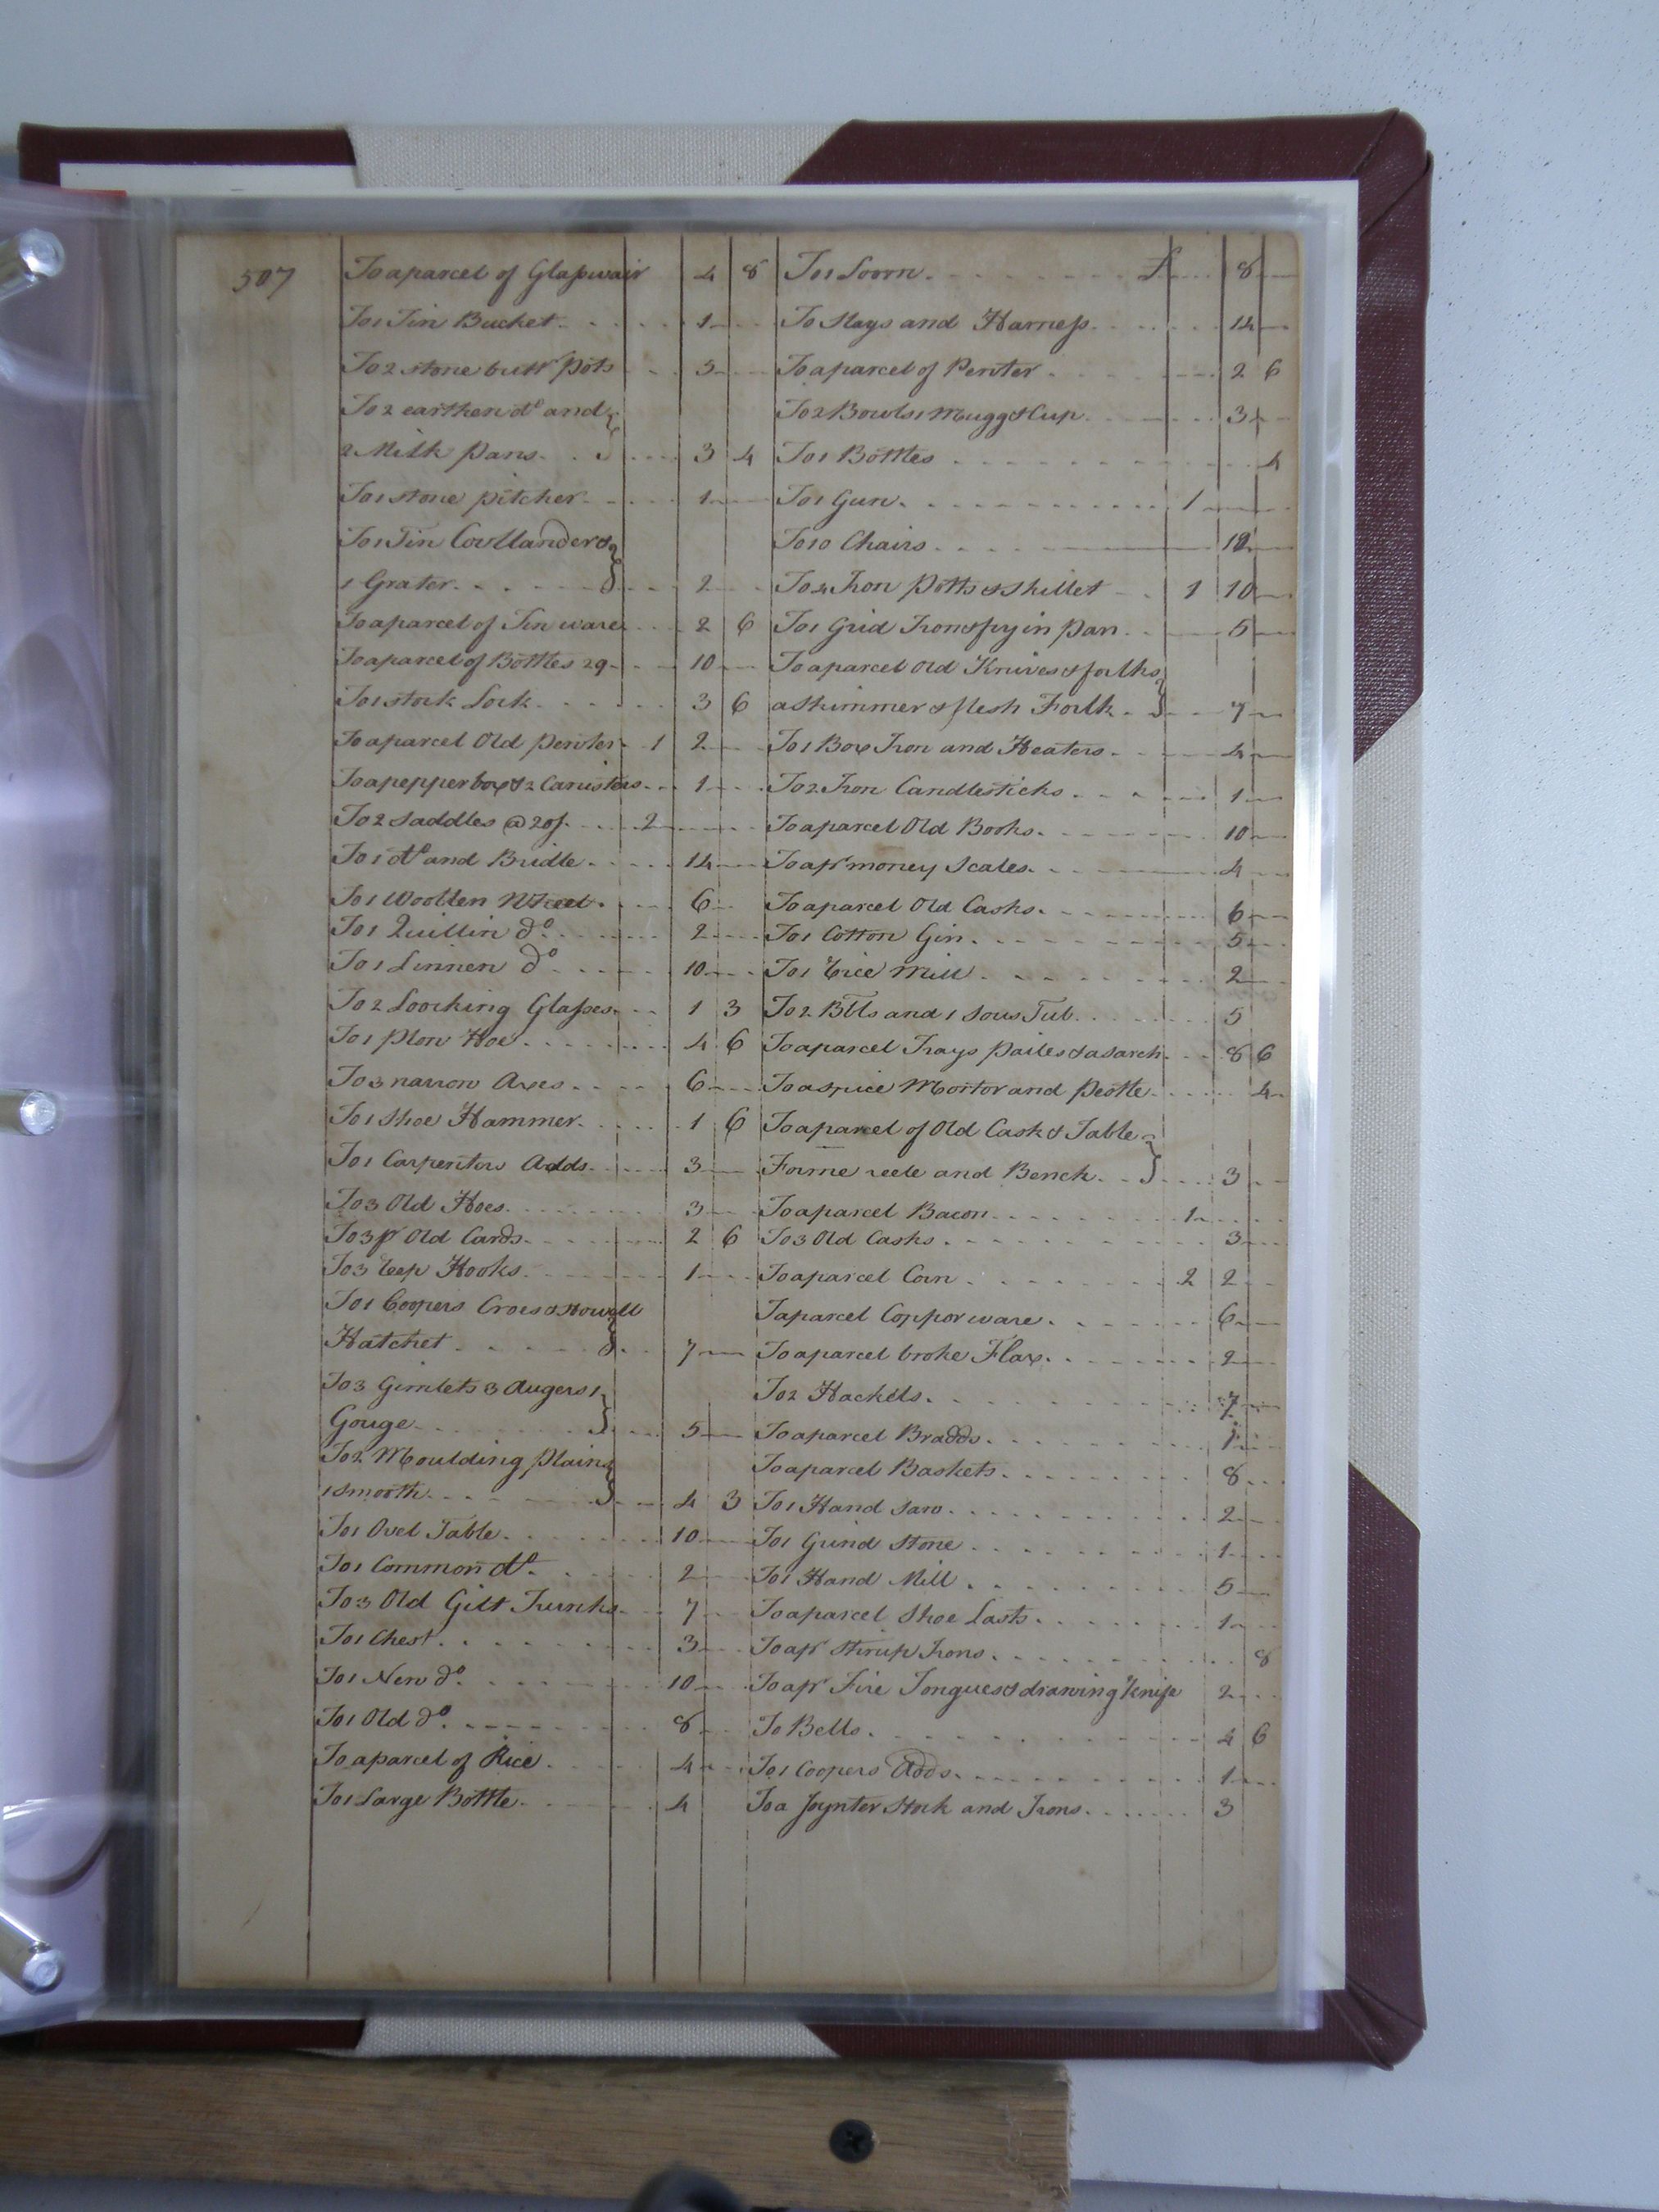 507
To a parcel of Glasswair 4 8
To 1 Tin Bucket 1
To 2 stone butr Pots 3
To 2 earthen do and
2 Milk Pans 3 4
To 1 stone pitcher 1
To 1 Tin Coullander &
1 Grater 2
To a parcel of Tin ware 2 6
To a parcel of Bottles 29 10
To 1 stock Lock 3 6
To a parcel Old Pewter 1 2
To a pepper box & 2 Canisters 1
To 2 Saddles @ 20/ 2
To 1 do and Bridle 14
To 1 Woollen Wheel 6
To 1 Quillin do 2
To 1 Linnen do 10
To 2 Loocking Glasses 1 3
To 1 Plow Hoe 4 6
To 3 narrow Axes 6
To 1 Shoe Hammer 1 6
To 1 Carpenters Adds 3
To 3 Old Hoes 3
To 3 pr Old Cards 2 6
To 3 Reep Hooks 1
To 1 Coopers Croes & Howell
Hatchet 7
To 3 Gimlets 3 Augers 1
Gouge 5
To 2 Moulding Plains
1 smooth 4 3
To 1 Ovel Table 10
To 1 Common do 2
To 3 Old Gilt Truncks 7
To 1 Chest 3
To 1 New do 10
To 1 Old do 8
To a parcel of Rice 4
To 1 Large Bottle 4
To 1 Loom £ 8
To Slays and Harness 14
To a parcel of Pewter 2 6
To 2 Bowls 1 Mugg & Cup 3
To 1 Bottles 4
To 1 Gun 1
To 10 Chairs 12
To 4 Iron Potts & Skillet 1 10
To 1 Grid Iron & fryin Pan 5
To a parcel Old Knives & forlks
a Skimmer & flesh Forlk 7
To 1 Box Iron and Heaters 4
To 2 Iron Candlesticks 1
To a parcel Old Books 10
To a pr money Scales 4
To a parcel Old Casks 6
To 1 Cotton Gin 5
To 1 Rice Mill 2
To 2 Bbls and 1 Sous Tub 5
To a parcel Trays Pailes & a Sarch 8 6
To a spice Mortor and Pestle 4
To a parcel of Old Cask & Table
Forme reele and Bench 3
To a parcel Bacon 1
To 3 Old Casks 3
To a parcel Corn 2 2
T a parcel Coppor ware 6
To a parcel broke Flax 2
To 2 Hackels 7
To a parcel Bradds 1
To a parcel Baskets 8
To 1 Hand Saw 2
To 1 Grind Stone 1
To 1 Hand Mill 5
To a parcel Shoe Lasts 1
To a pr Stirup Irons 8
To a pr Fire Tongues & drawing Knife 2
To Bells 4 6
To 1 Coopers Adds 1
To a Joynter Stock and Irons 3